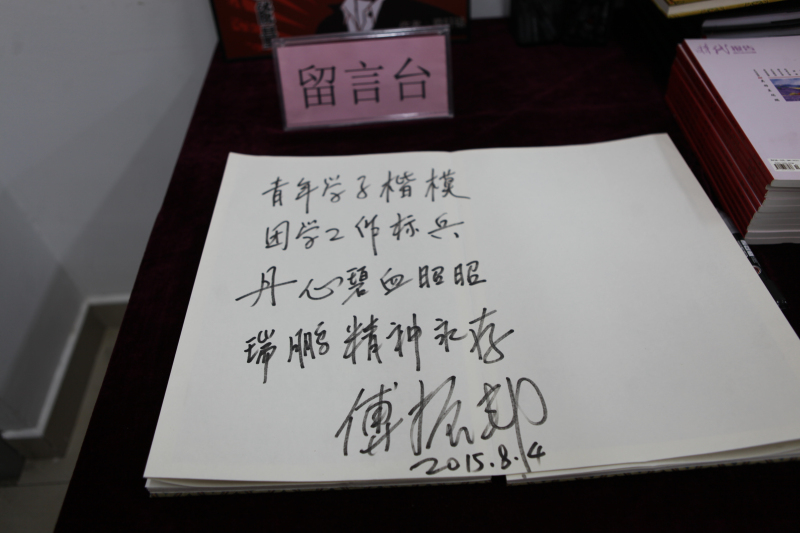 留言台
青年学子楷模
团学工作标兵
丹心碧血昭昭
瑞鹏精神永存
傅振邦
2015.8.4